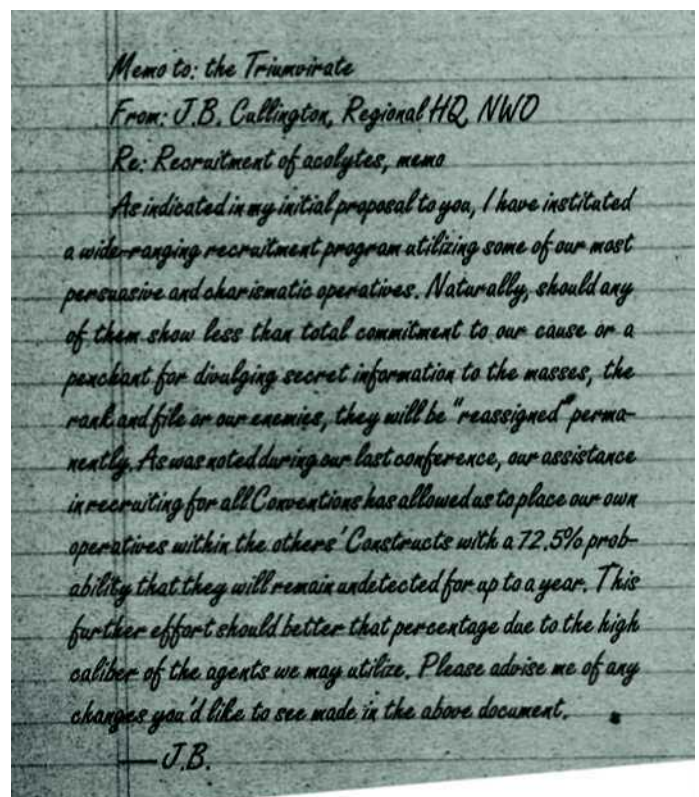 Memo to: the Triumvirate
From: J.B. Cullington, Regional HQ, NWO
Re: Recruitment of acolytes, memo
As indicated in my initial proposal to you, I have instituted
a wide-ranging recruitment program utilizing some of our most
persuasive and charismatic operatives. Naturally, should any
of them show less than total commitment to our cause or a
penchant for divulging secret information to the masses, the
rank and file or our enemies, they will be "reassigned" perma-
nently. As was noted during our last conference, our assistance
in recruiting for all Conventions has allowed us to place our own
operatives within the others' Constructs with a 72.5% prob-
ability that they will remain undetected for up to a year. This
further effort should better that percentage due to the high
caliber of the agents we may utilize. Please advise me of any
changes you'd like to see made in the above document.
— J.B.